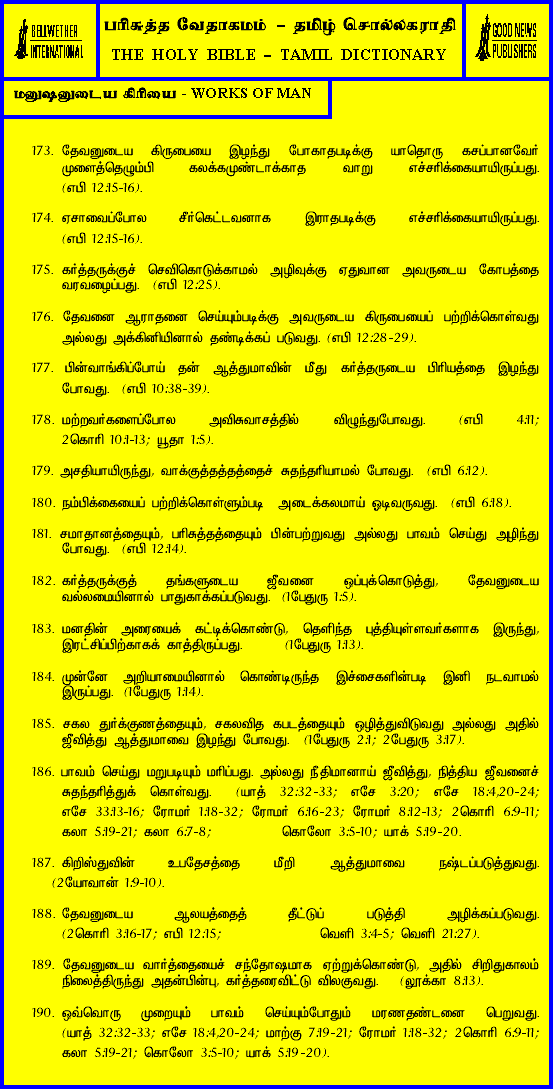 BELLWETHER
INTERNATIONAL
பரிசுத்த வேதாகமம் – தமிழ் சொல்லகராதி
THE HOLY BIBLE – TAMIL DICTIONARY
GOOD NEWS
PUBLISHERS
மனுஷனுடைய கிரியை - WORKS OF MAN
173. தேவனுடைய கிருபையை இழந்து போகாதபடிக்கு யாதொரு கசப்பானவேர்
முளைத்தெழும்பி கலக்கமுண்டாக்காத வாறு எச்சரிக்கையாயிருப்பது.
(எபி 12:15-16).
174. ஏசாவைப்போல சீர்கெட்டவனாக இராதபடிக்கு எச்சரிக்கையாயிருப்பது.
(எபி 12:15-16).
175. கர்த்தருக்குச் செவிகொடுக்காமல் அழிவுக்கு ஏதுவான அவருடைய கோபத்தை
வரவழைப்பது. (எபி 12:25).
176. தேவனை ஆராதனை செய்யும்படிக்கு அவருடைய கிருபையைப் பற்றிக்கொள்வது
அல்லது அக்கினியினால் தண்டிக்கப் படுவது. (எபி 12:28-29).
177. பின்வாங்கிப்போய் தன் ஆத்துமாவின் மீது கர்த்தருடைய பிரியத்தை இழந்து
போவது. (எபி 10:38-39).
178. மற்றவர்களைப்போல அவிசுவாசத்தில் விழுந்துபோவது. (எபி 4:11;
2கொரி 10:1-13; யூதா 1:5).
179. அசதியாயிருந்து, வாக்குத்தத்தத்தைச் சுதந்தரியாமல் போவது. (எபி 6:12).
180. நம்பிக்கையைப் பற்றிக்கொள்ளும்படி அடைக்கலமாய் ஓடிவருவது. (எபி 6:18).
181. சமாதானத்தையும், பரிசுத்தத்தையும் பின்பற்றுவது அல்லது பாவம் செய்து அழிந்து
போவது. (எபி 12:14).
182. கர்த்தருக்குத் தங்களுடைய ஜீவனை ஒப்புக்கொடுத்து, தேவனுடைய
வல்லமையினால் பாதுகாக்கப்படுவது. (1பேதுரு 1:5).
183. மனதின் அரையைக் கட்டிக்கொண்டு, தெளிந்த புத்தியுள்ளவர்களாக இருந்து,
இரட்சிப்பிற்காகக் காத்திருப்பது. (1பேதுரு 1:13).
184. முன்னே அறியாமையினால் கொண்டிருந்த இச்சைகளின்படி இனி நடவாமல்
இருப்பது. (1பேதுரு 1:14).
185. சகல துர்க்குணத்தையும், சகலவித கபடத்தையும் ஒழித்துவிடுவது அல்லது அதில்
ஜீவித்து ஆத்துமாவை இழந்து போவது. (1பேதுரு 2:1; 2பேதுரு 3:17).
186. பாவம் செய்து மறுபடியும் மரிப்பது. அல்லது நீதிமானாய் ஜீவித்து, நித்திய ஜீவனைச்
சுதந்தரித்துக் கொள்வது. (யாத் 32:32-33; எசே 3:20; எசே 18:4,20-24;
எசே 33:13-16; ரோமர் 1:18-32; ரோமர் 6:16-23; ரோமர் 8:12-13; 2கொரி 6:9-11;
கலா 5:19-21; கலா 6:7-8; கொலோ 3:5-10; யாக் 5:19-20.
187. கிறிஸ்துவின் உபதேசத்தை மீறி ஆத்துமாவை நஷ்டப்படுத்துவது.
(2யோவான் 1:9-10).
188. தேவனுடைய ஆலயத்தைத் தீட்டுப் படுத்தி அழிக்கப்படுவது.
(2கொரி 3:16-17; எபி 12:15; வெளி 3:4-5; வெளி 21:27).
189. தேவனுடைய வார்த்தையைச் சந்தோஷமாக ஏற்றுக்கொண்டு, அதில் சிறிதுகாலம்
நிலைத்திருந்து அதன்பின்பு, கர்த்தரைவிட்டு விலகுவது. (லூக்கா 8:13).
190. ஒவ்வொரு முறையும் பாவம் செய்யும்போதும் மரணதண்டனை பெறுவது.
(யாத் 32:32-33; எசே 18:4,20-24; மாற்கு 7:19-21; ரோமர் 1:18-32; 2கொரி 6:9-11;
கலா 5:19-21; கொலோ 3:5-10; யாக் 5:19-20).